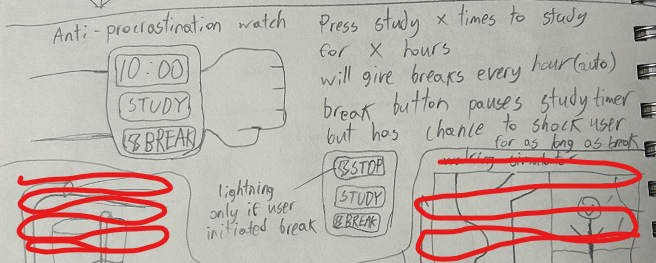 Anti-procrastination watch
10:00
STUDY
BREAK
Press study x times to study
for x hours
will give breaks every hour (auto)
break button pauses study timer
but has chance to shock user
for as long as break
lightning
only if user
initiated break
STOP
STUDY
BREAK
walking simulator